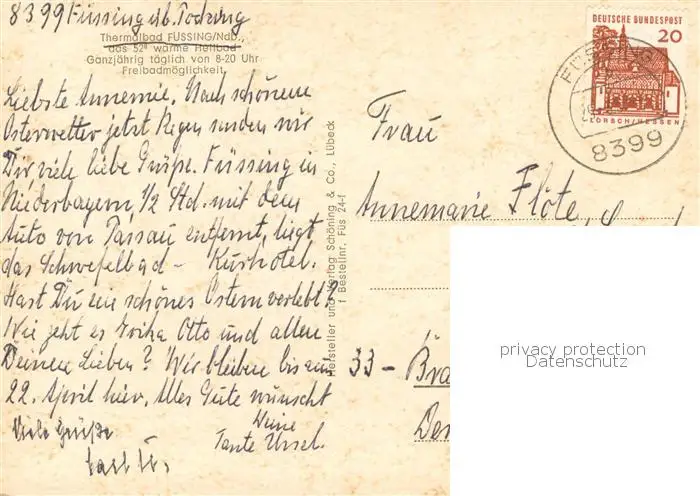 8399 Füssing üb. Pocking
Thermalbad FÜSSING/Ndb.,
das 52° warme Heilbad
Ganzjährig täglich von 8-20 Uhr
Freibadmöglichkeit
Liebste Annemie. Nach schönem
Osterwetter jetzt Regen senden wir
Dir viele liebe Grüße. Füssing in
Niederbayern, 1/2 Std. mit dem
Auto von Passau entfernt, liegt
das Schwefelbad - Kurhotel.
Hast Du ein schönes Ostern verlebt?
Wie geht es Erika Otto und allen
Deinen Lieben? Wir bleiben bis zum
22. April hier. Alles Gute wünscht
Deine
Tante Ursel.
Viele Grüße
Hersteller und Verlag Schöning & Co., Lübeck
f Bestellnr. Füs 24-f
DEUTSCHE BUNDESPOST
20
LORSCH/HESSEN
FÜSSING
8399
Frau
Annemarie Flöte
33 - Bra
privacy protection
Datenschutz